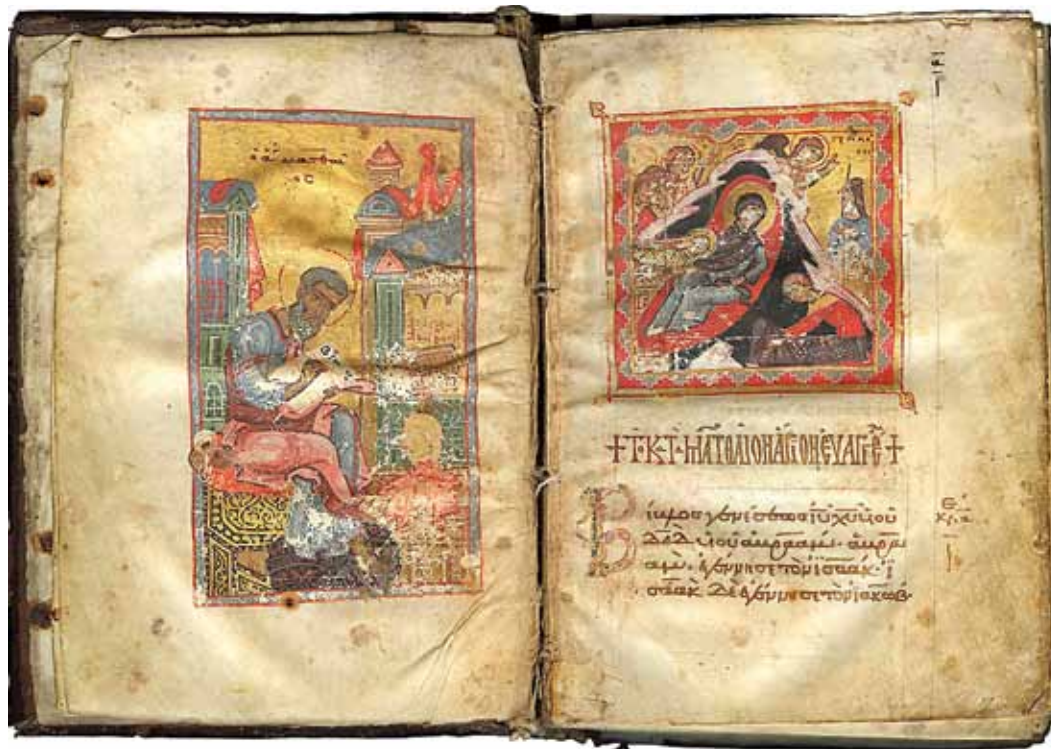 ὁ ἅ ματθαῖ
ος
+ Τ· Κ· Τ· ΜΑΤΘΑΙΟΝ ΑΓΙΟΝ ΕΥΑΓΓΕ +
Βίβλος γενέσεως ἰῦ χῦ υἱοῦ
δᾱδ υἱοῦ ἀβραάμ· ἀβρα
ὰμ· ἐγέννησε τὸν ἰσαάκ· ἰ
σαὰκ δὲ ἐγέννησε τὸν ἰακώβ·